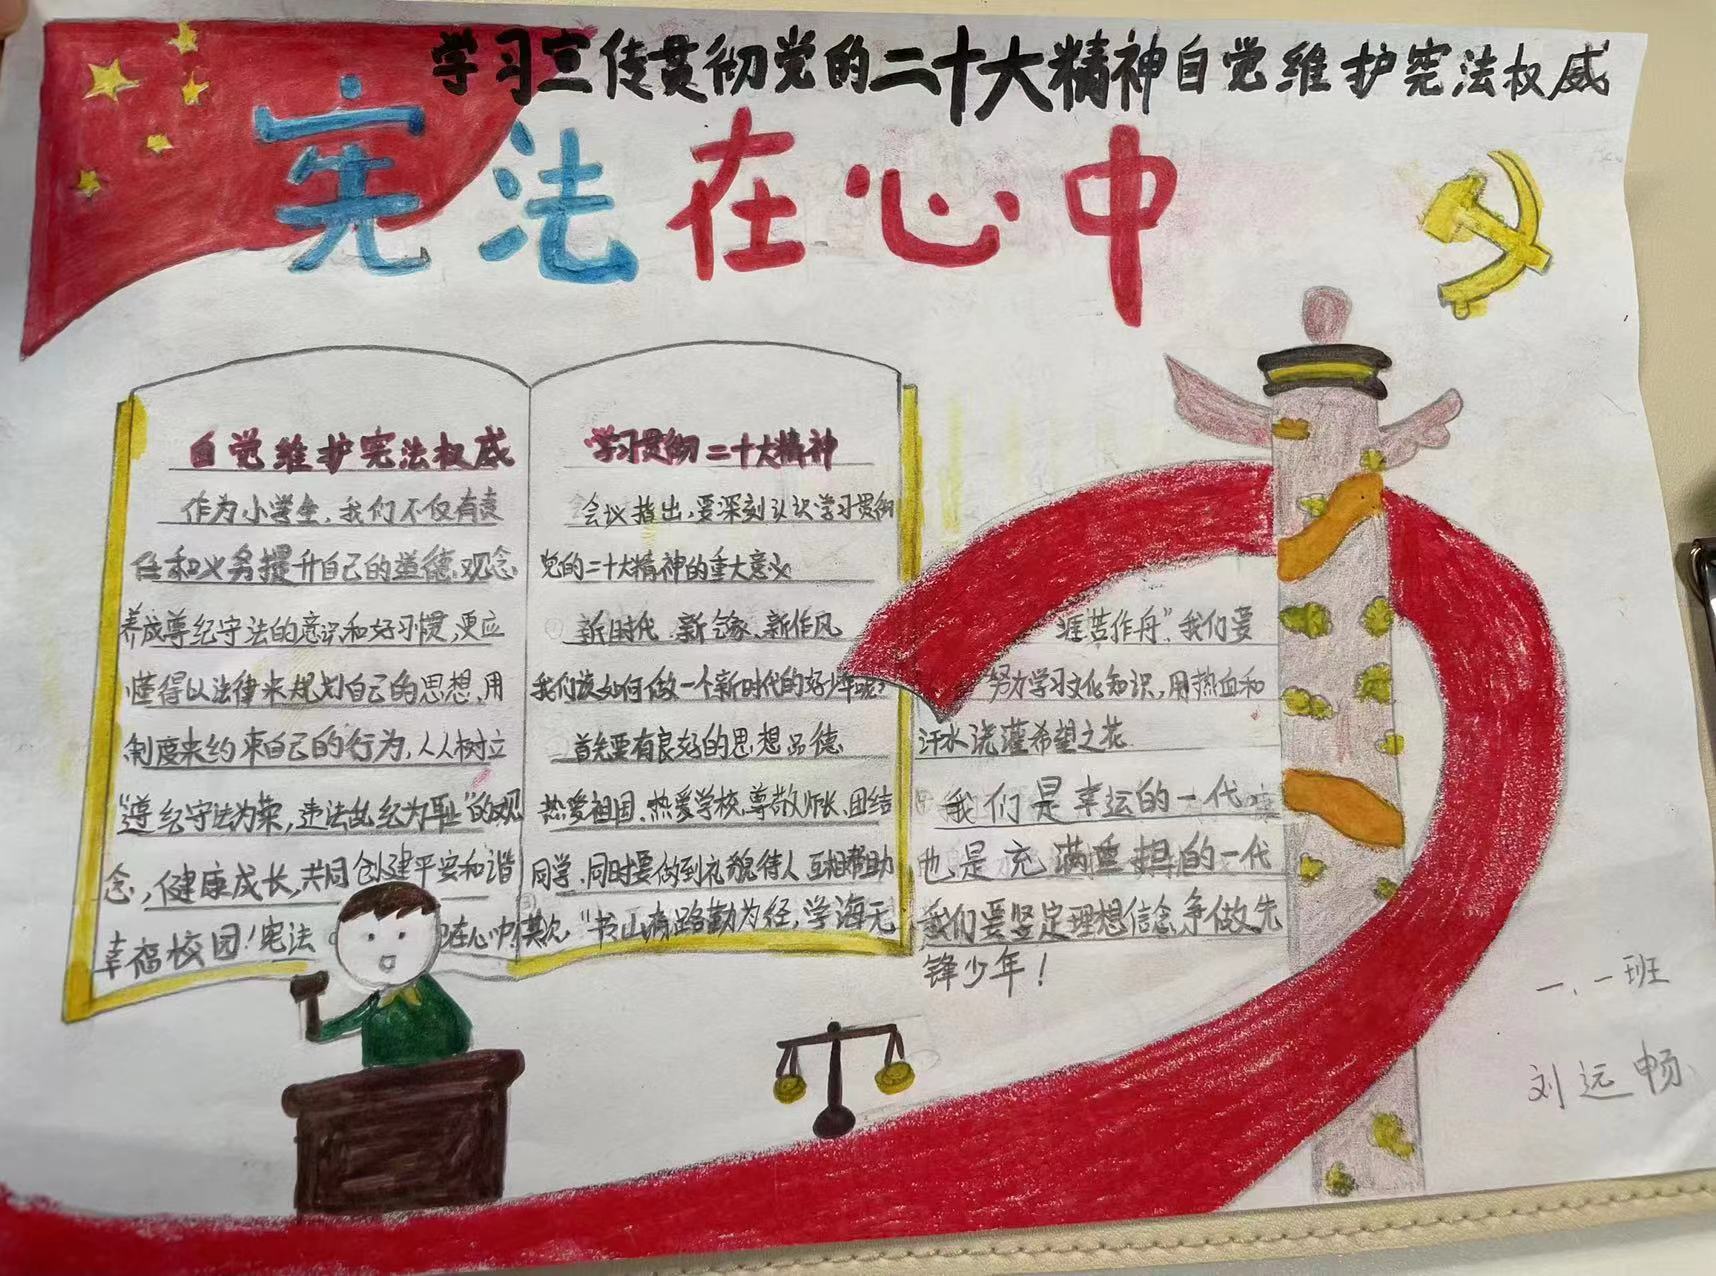 学习宣传贯彻党的二十大精神自觉维护宪法权威
宪法在心中
自觉维护宪法权威
作为小学生，我们不仅有责
任和义务提升自己的道德观念
养成尊纪守法的意识和好习惯，更应
懂得以法律来规划自己的思想，用
制度来约束自己的行为，人人树立
“遵纪守法为荣，违法乱纪为耻”的观
念，健康成长，共同创建平安和谐
幸福校园！宪法在心中
学习贯彻二十大精神
会议指出，要深刻认识学习贯彻
党的二十大精神的重大意义
新时代、新气象、新作风
我们该如何做一个新时代的好少年呢？
首先要有良好的思想品德
热爱祖国、热爱学校、尊敬师长、团结
同学，同时要做到礼貌待人 互相帮助
其次“书山有路勤为径，学海无
涯苦作舟”，我们要
努力学习文化知识，用热血和
汗水浇灌希望之花
我们是幸运的一代
也是充满重担的一代
我们要坚定理想信念争做先
锋少年！
一、一班
刘远畅